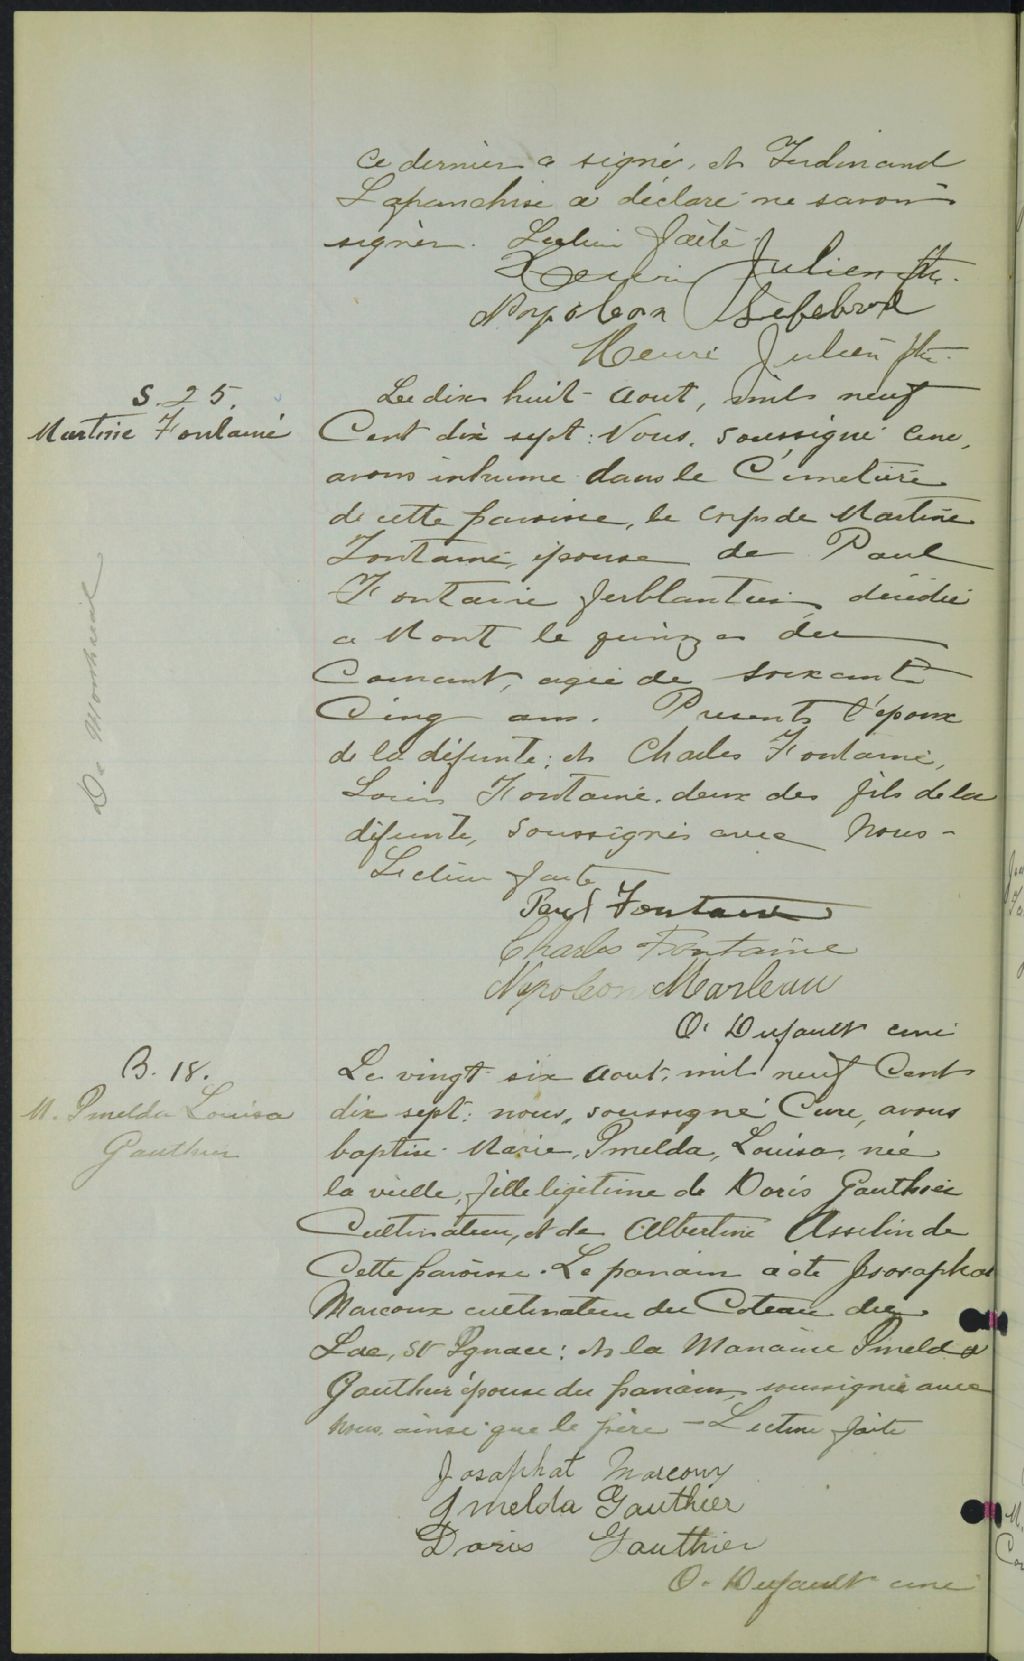 Ce dernier a signé, et Ferdinand
Lafranchise a déclaré ne savoir
signer. Lecture faite
Henri Julien ptre.
Napoléon Lefebvre
Henri Julien ptre.
S. 25.
Martine Fontaine
De Montréal
Le dix huit Aout, mil neuf
Cent dix sept: Nous, soussigné Curé,
avons inhumé dans le Cimetière
de cette paroisse, le corps de Martine
Fontaine, épouse de Paul
Fontaine ferblantier, décédée
a Mont le quinze du
Courant, agée de soixante
Cinq ans. Presents l'époux
de la défunte; et Charles Fontaine,
Louis Fontaine, deux des fils de la
défunte, soussignés avec Nous -
Lecture faite
Paul Fontaine
Charles Fontaine
Napoléon Marleau
O. Dufault curé
B. 18.
M. Imelda Louisa
Gauthier
Le vingt six Aout, mil neuf Cent
dix sept: nous, soussigné Curé, avons
baptisé Marie, Imelda, Louisa, née
la vielle, fille légitime de Doris Gauthier
Cultivateur, et de Albertine Asselin de
Cette paroisse. Le parrain a été Josaphat
Marcoux cultivateur du Coteau du
Lac, St Ignace; et la Marraine Imelda
Gauthier épouse du parrain soussignés avec
Nous, ainsi que le père - Lecture faite
Josaphat Marcoux
Imelda Gauthier
Doris Gauthier
O. Dufault curé